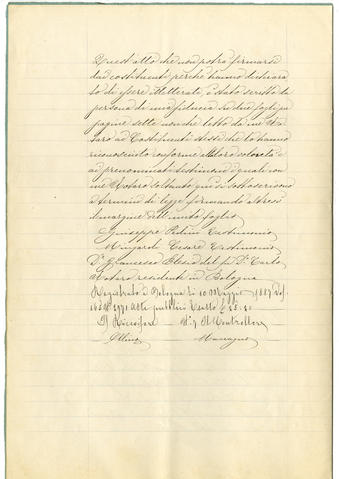 Quest'atto che non potrà firmarsi
dai costituenti perché hanno dichiara
to di essere illetterati è stato scritto da
persona di mia fiducia su due fogli in
pagine sette non che letto da me No
taro ai Costituenti stessi che lo hanno
riconosciuto conforme alla loro volontà e
ai prenominati testimoni i quali con
me Notaro soltanto qui si sottoscrivono
a termini di legge firmando altresì
il margine dell'unito foglio
Giuseppe testimonio
Cesare testimonio
Dr Francesco del fu Dr Carlo
Notaro residente in Bologna
Registrato a Bologna li 10 Maggio 1887
atti pubblici
Il Ricevitore Il Controllore